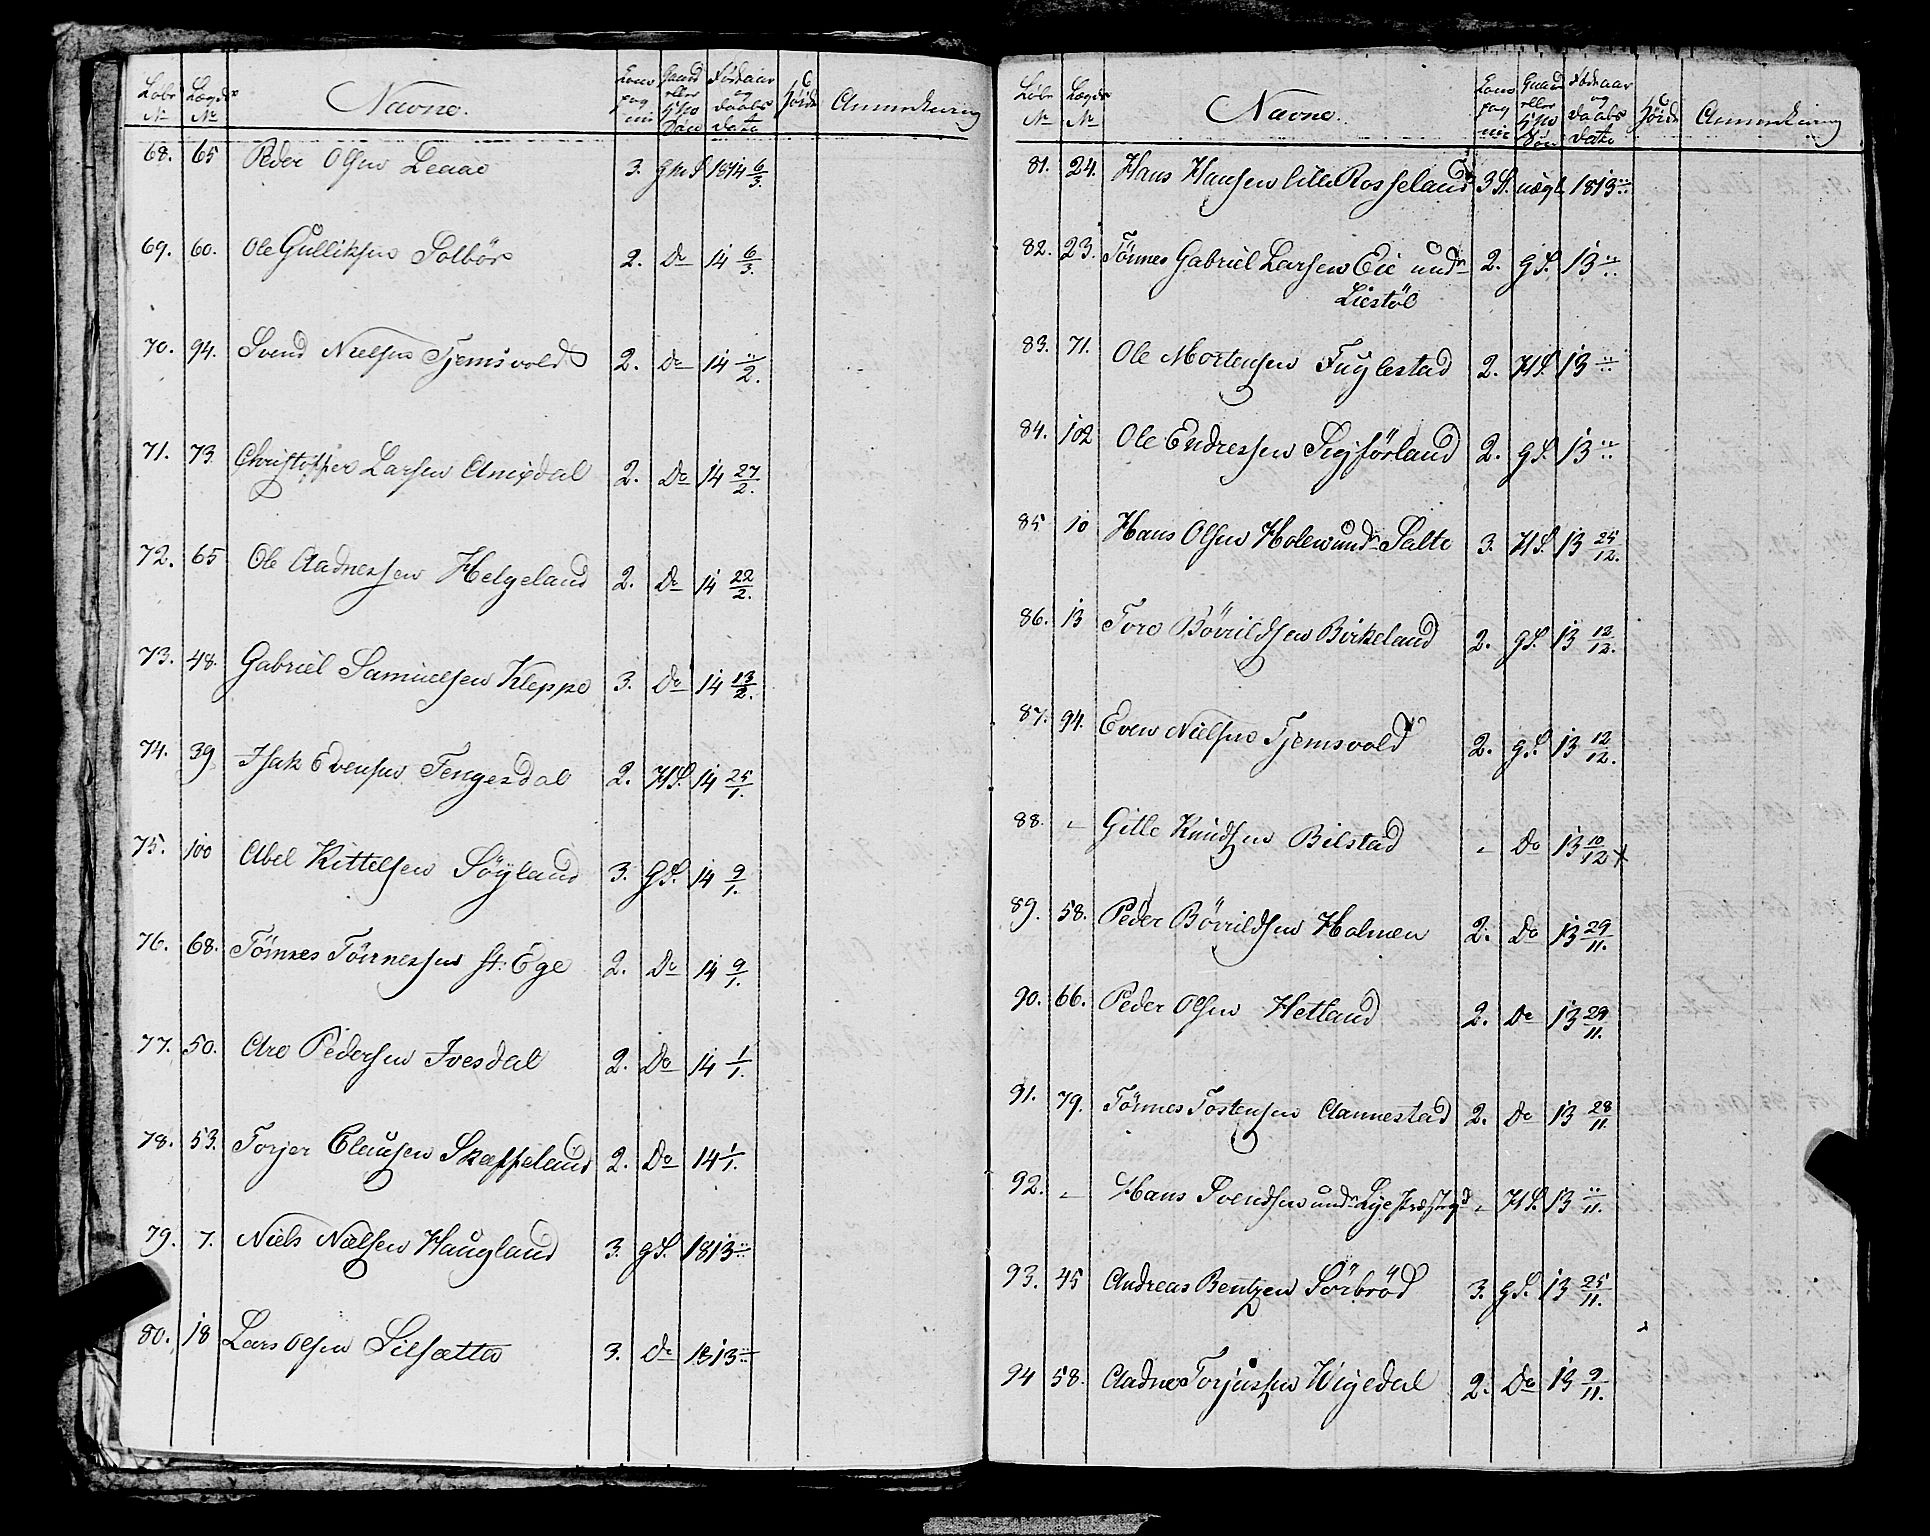 Løbe № Lægds № Navne. Com pag nie Gaard eller Huus Søn Fødeaar og Daabs Dato Høide Anmerkning
68. 65 Peder Olsen Leaae 3. g M S 1814 6/3.
69. 60. Ole Gulliksen Solbør 2. Do 14 6/3.
70. 94. Svend Nielsen Tjemsvold 2. Do 14 "/2.
71. 73. Christopher Larsen Amdal 2. Do 14 27/2.
72. 65 Ole Aadnessen Helgeland 2. Do 14 22/2.
73. 48. Gabriel Samuelsen Kleppe 3. Do 14 13/2.
74. 39 Isak Evensen Tengesdal 2. H S. 14 25/1.
75. 100 Abel Kittelsen Søyland 3. G S. 14 9/1.
76. 68. Tønnes Tønnessen st: Ege 2. Do 14 9/1.
77. 50. Are Pedersen Ivesdal 2. Do 14 1/1.
78. 53. Torjer Clausen Skæppeland 2. Do 14 1/1.
79. 7. Niels Nielsen Haugland 3. g S. 1813 "/"
80. 18 Lars Olsen Silsætter 3. Do 1813 "/"
Løbe № Lægds № Navne. Com pag nie Gaard eller Huus Søn Fødeaar og Daabs Dato Høide Anmerkning
81. 24. Hans Hansen lille Rosseland 3 St. nægt 1813 "/"
82. 23. Tønnes Gabriel Larsen Eie undr 2. g S. 13 "/"
Liestøl
83. 71. Ole Mortensen Fuglestad 2. H S. 13 "/"
84. 102 Ole Endressen Sigførland 2. g S. 13 "/"
85 10 Hans Olsen Holen undr Salte 3. H S. 13 25/12.
86. 13 Tore Bøvrildsen Birkeland 2. g S. 13 12/12.
87. 94. Even Nielsen Tjemsvold 2. g S. 13 12/12.
88. - Gitle Knudsen Bilstad - Do 13 10/12 x
89. 58. Peder Bøvrildsen Holmen 2. Do 13 29/11.
90. 66. Peder Olsen Hetland 2. Do 13 29/11.
91. 79. Tønnes Tostensen Aannestad 2. Do 13 28/11.
92. - Hans Svendsen undr Lye Præstegd - H S. 13 "/11.
93. 45 Andreas Bentzen Sørbrød 3. g S. 13 25/11.
94 58. Aadne Torjussen Wigedal 2. Do 13 9/11.